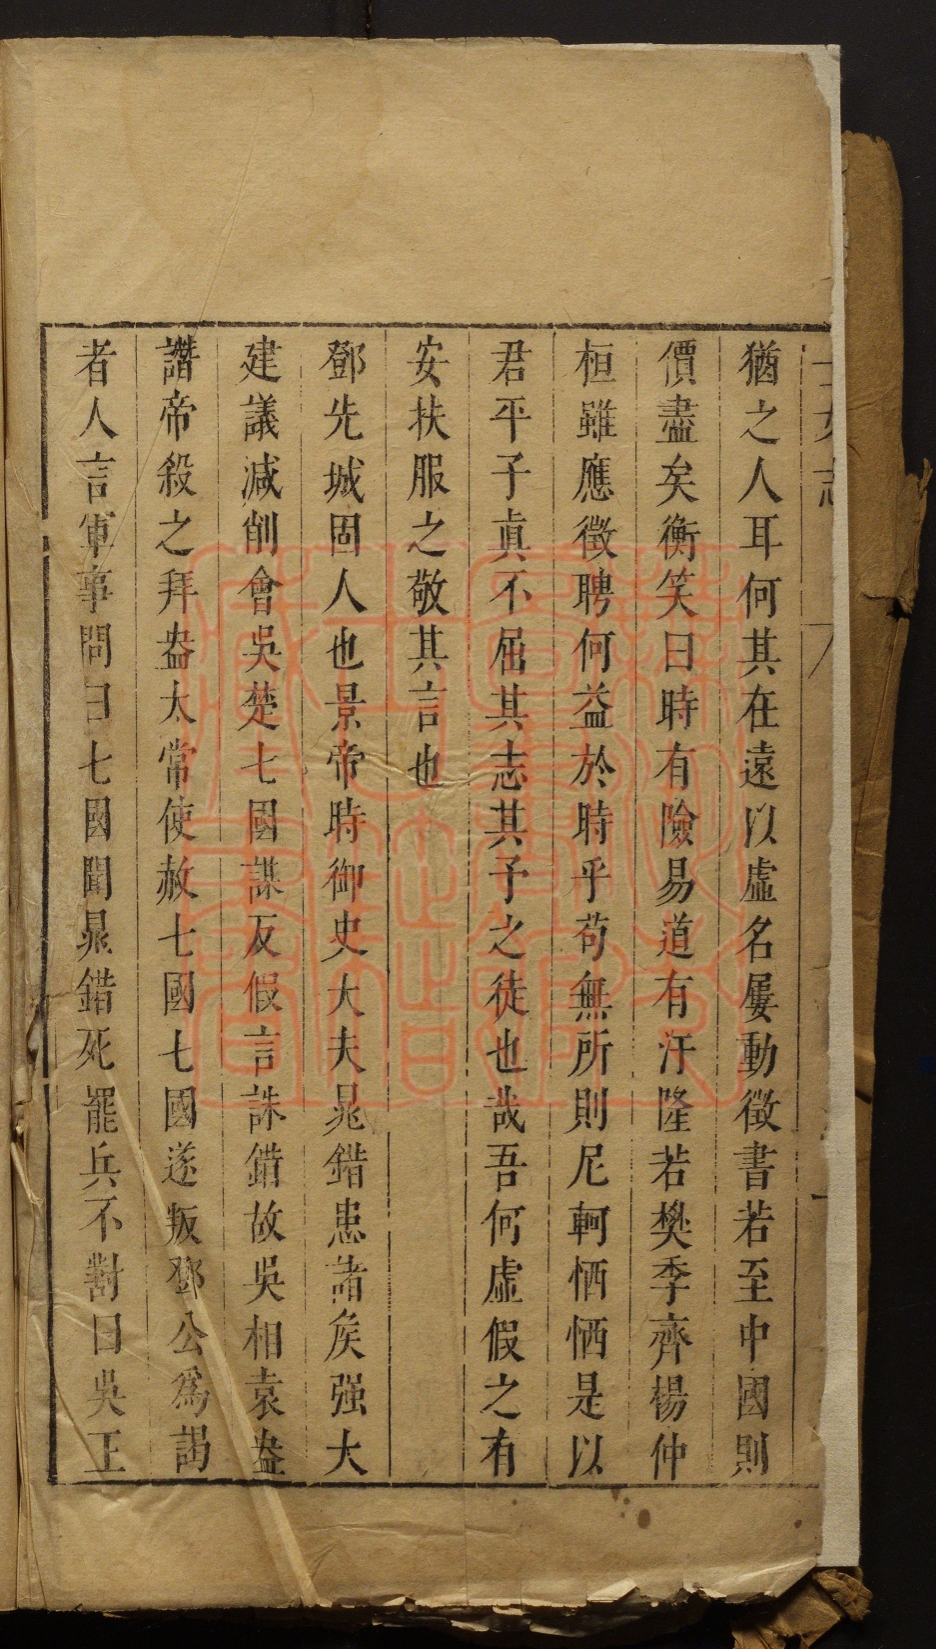 士女志
猶之人耳何其在遠以虛名屢動徵書若至中國則
價盡矣衡笑曰時有險易道有汙隆若樊季齊楊仲
桓雖應徵聘何益於時乎苟無所則尼軻恓恓是以
君平子真不屈其志其予之徒也哉吾何虛假之有
安扶服之敬其言也
鄧先城固人也景帝時御史大夫晁錯患諸矦强大
建議減削會吳楚七國謀反假言誅錯故吳相袁盎
譖帝殺之拜盎太常使赦七國七國遂叛鄧公爲謁
者人言軍事問曰七國聞晁錯死罷兵不對曰吳王